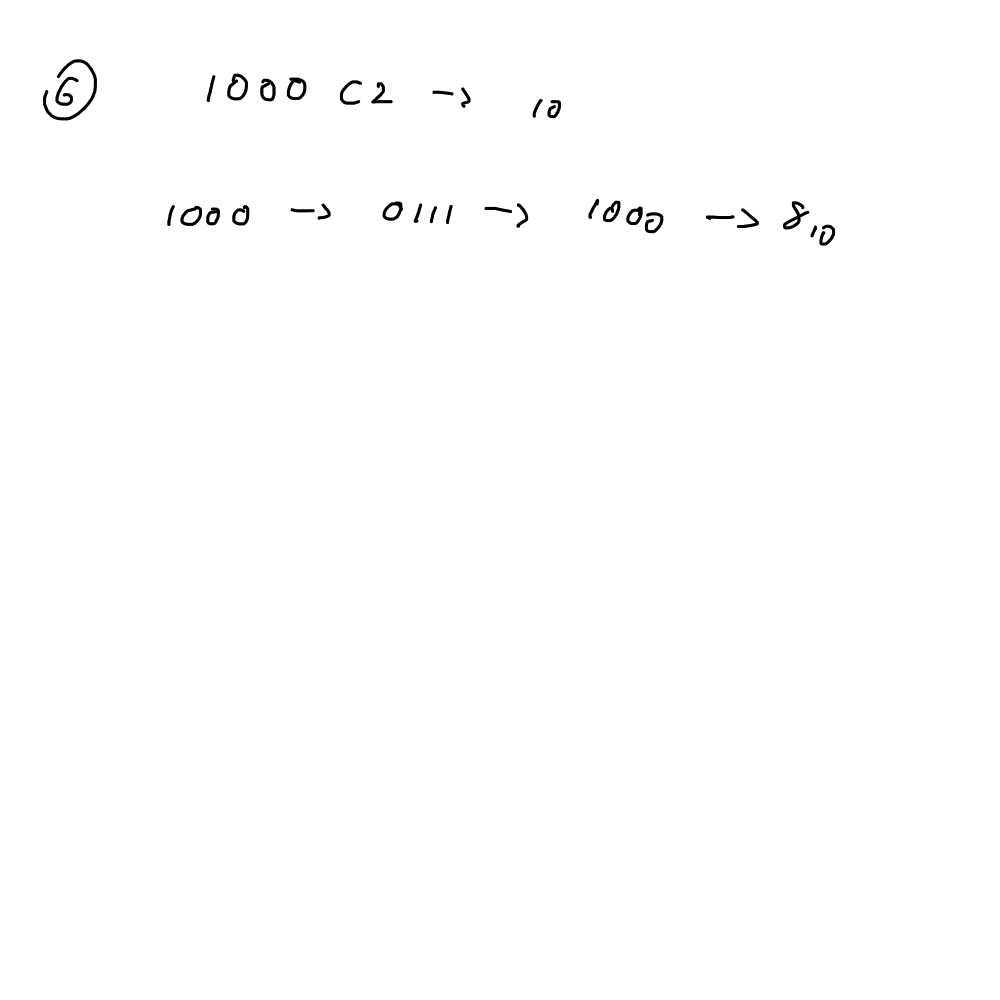 ⑥ 1000 C2 -> ₁₀
1000 -> 0111 -> 1000 -> 8₁₀